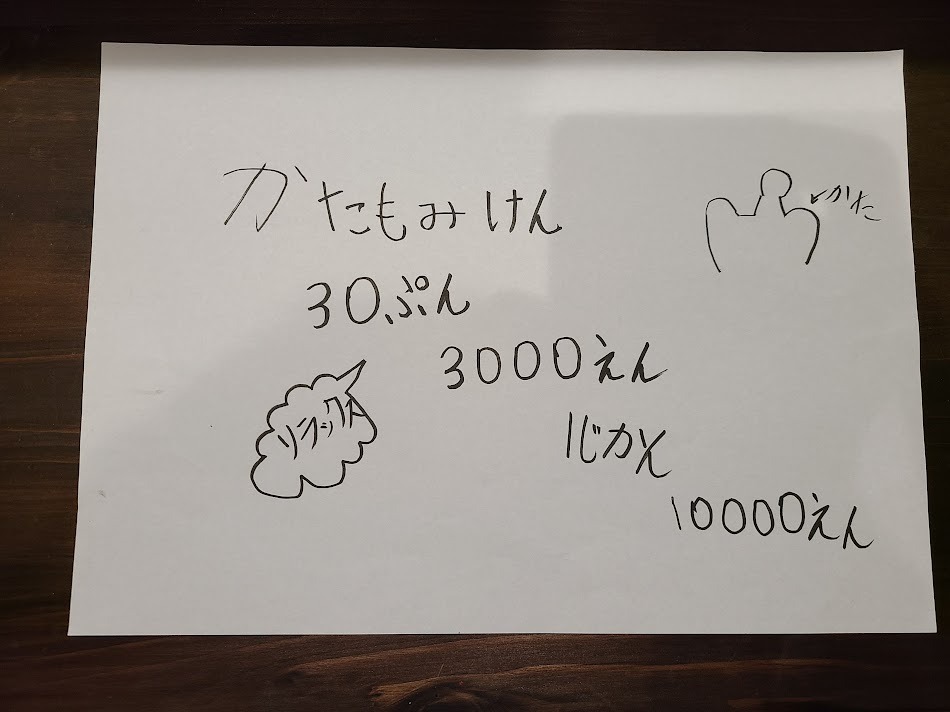 かたもみけん
かた
30ぷん
3000えん
リラックス
1じかん
10000えん